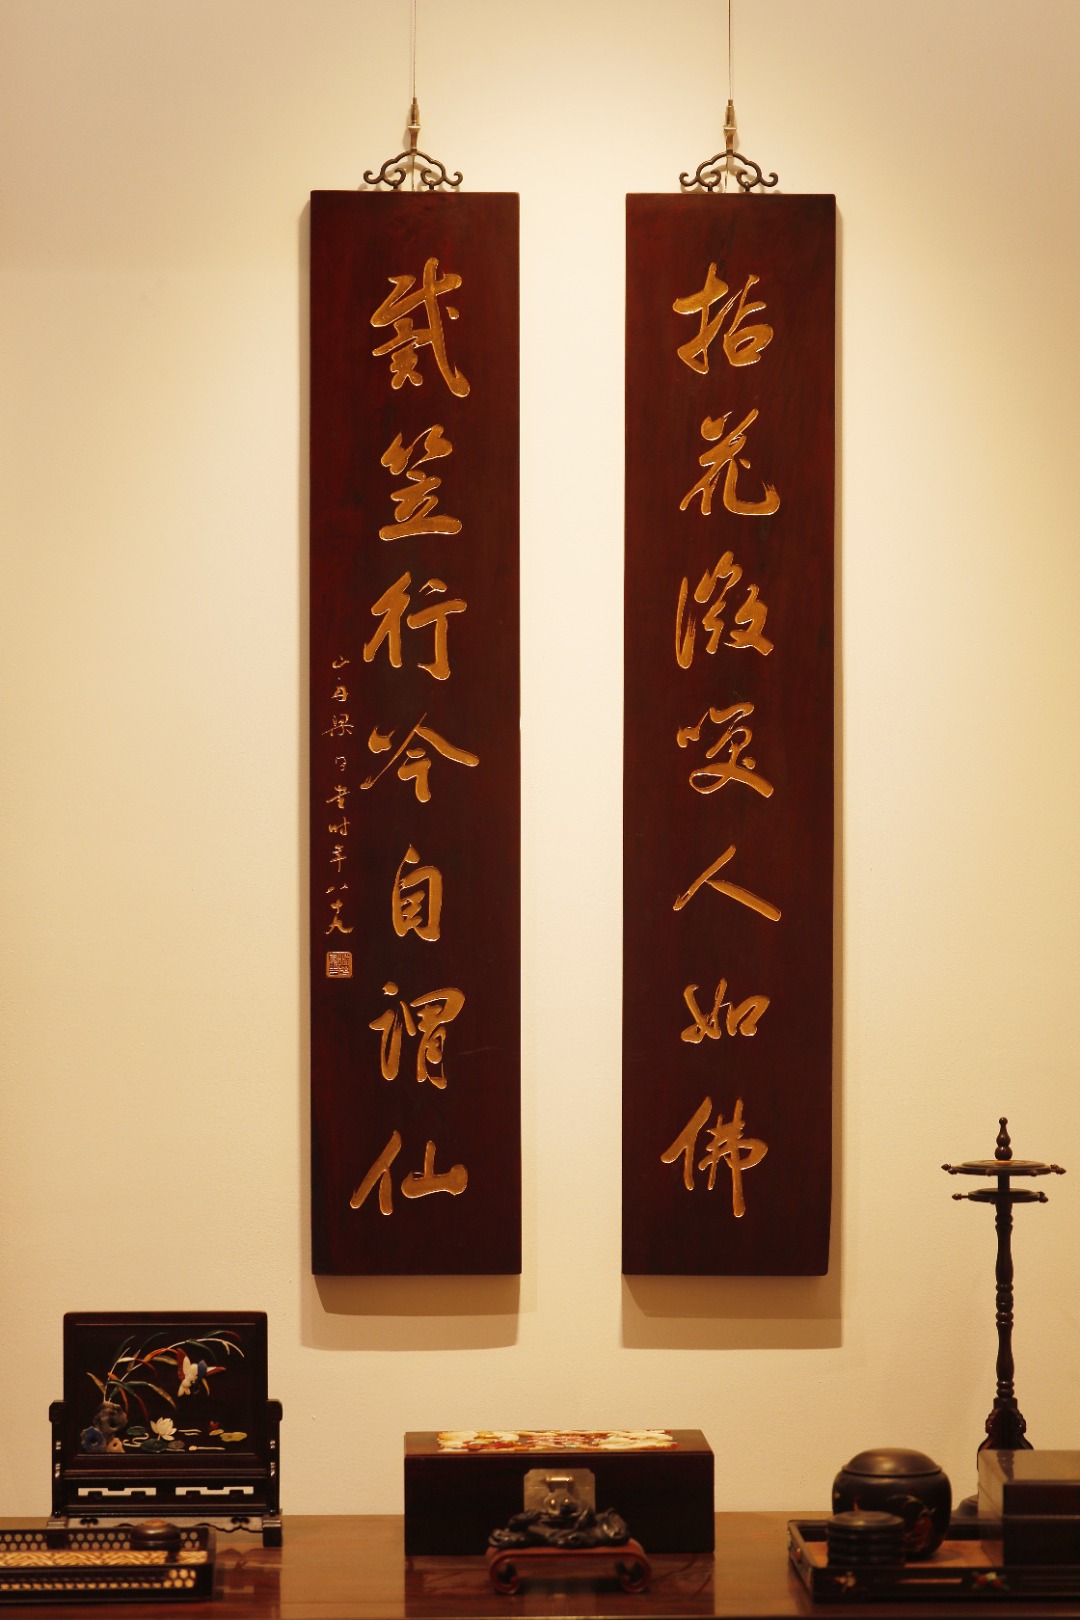 拈花微咲人如佛
戴笠行吟自謂仙
山舟梁同書时年八十九